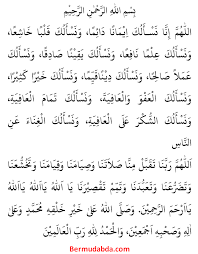 بِسْمِ اللهِ الرَّحْمٰنِ الرَّحِيْمِ
اَللّٰهُمَّ اِنَّا نَسْأَلُكَ اِيْمَانًا دَائِمًا، وَنَسْأَلُكَ قَلْبًا خَاشِعًا،
وَنَسْأَلُكَ عِلْمًا نَافِعًا، وَنَسْأَلُكَ يَقِيْنًا صَادِقًا، وَنَسْأَلُكَ
عَمَلاً صَالِحًا، وَنَسْأَلُكَ دِيْنًاقَيِّمًا، وَنَسْأَلُكَ خَيْرًا كَثِيْرًا،
وَنَسْأَلُكَ الْعَفْوَ وَالْعَافِيَةَ، وَنَسْأَلُكَ تَمَامَ الْعَافِيَةِ،
وَنَسْأَلُكَ الشُّكْرَ عَلَى الْعَافِيَةِ، وَنَسْأَلُكَ الْغِنَاءَ عَنِ
النَّاسِ
اَللّٰهُمَّ رَبَّنَا تَقَبَّلْ مِنَّا صَلاَتَنَا وَصِيَامَنَا وَقِيَامَنَا وَتَخُشُّعَنَا
وَتَضَرُّعَنَا وَتَعَبُّدَنَا وَتَمِّمْ تَقْصِيْرَنَا يَا اَللهُ يَااَللهُ يَااَللهُ
يَااَرْحَمَ الرَّحِمِيْنَ، وَصَلَّى اللهُ عَلَى خَيْرِ خَلْقِهِ مُحَمَّدٍ وَعَلَى
اٰلِهِ وَصَحْبِهِ اَجْمَعِيْنَ، وَالْحَمْدُ لِلّٰهِ رَبِّ الْعَالَمِيْنَ
Bermudabda.com